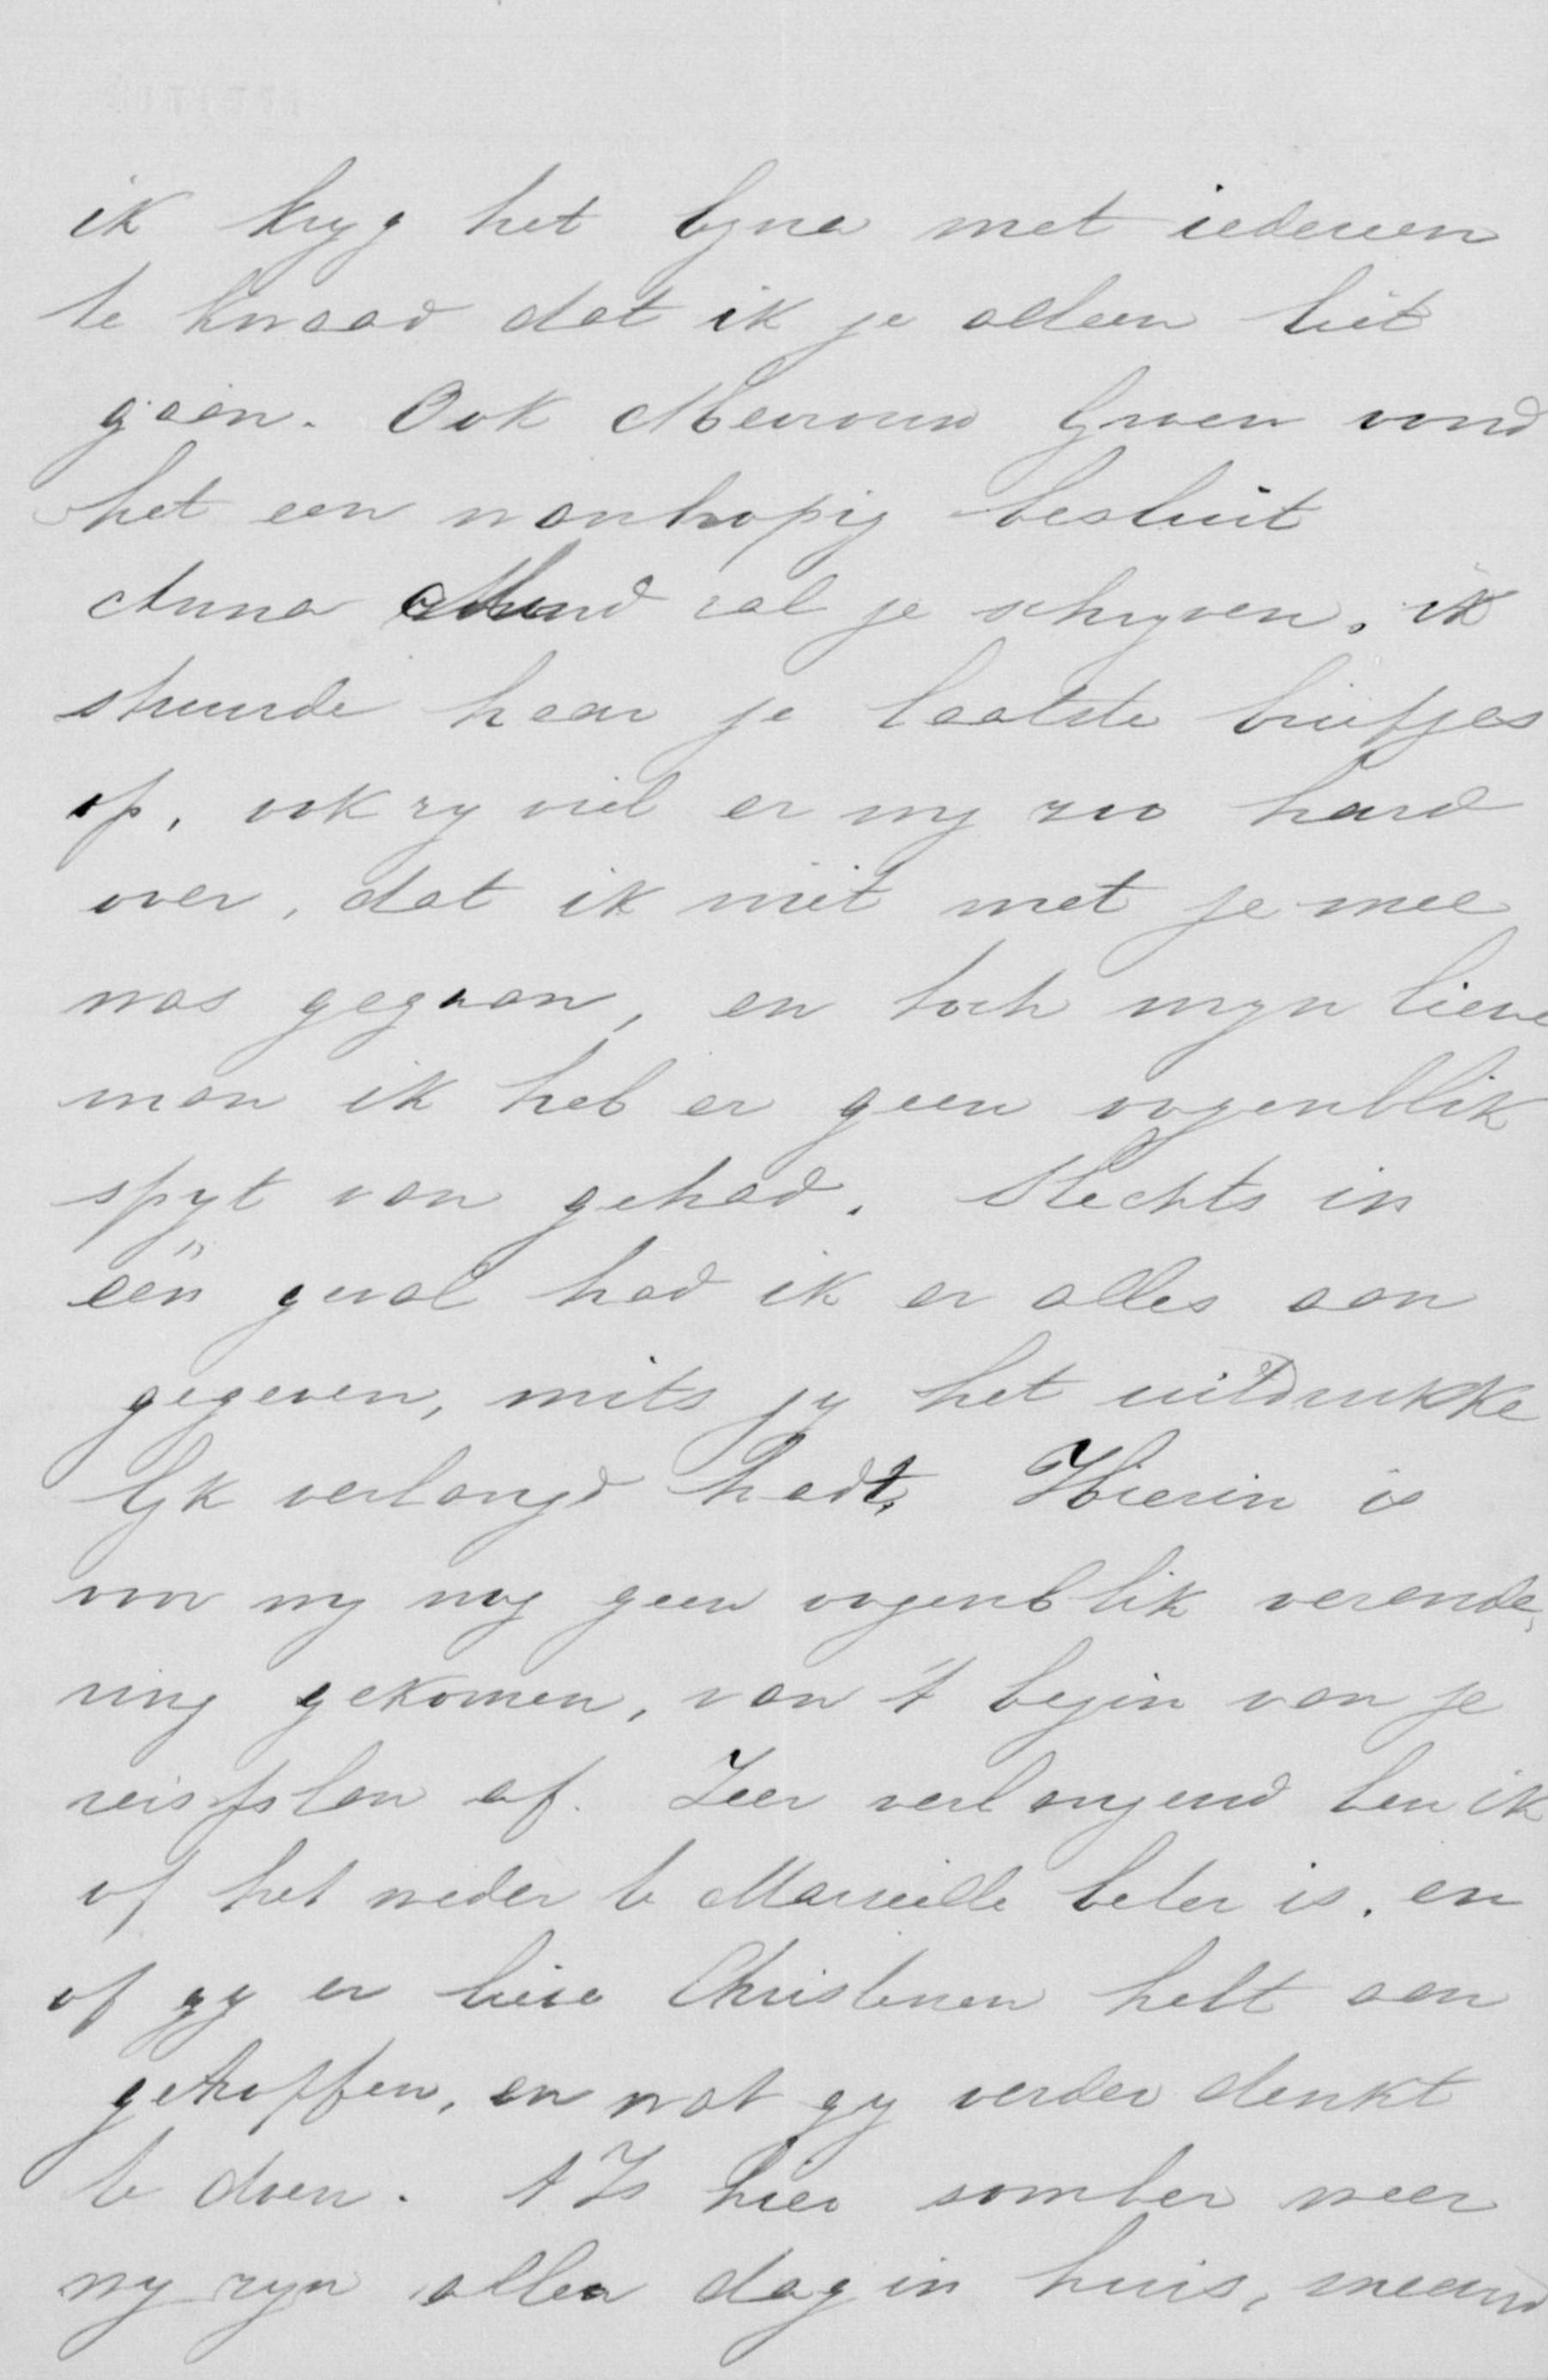 ik kryg het byna met iedereen
te kwaad dat ik je alleen liet
gaan. Ook Mevrouw Groen vond
het een wanhopig besluit
Anna zal je schryven, ik
stuurde haar je laatste briefjes
op, ook zy viel er my zoo hard
over, dat ik niet met je mee
was gegaan, en toch myn lieve
man ik heb er geen oogenblik
spyt van gehad. Slechts in
één geval had ik er alles aan
gegeven, mits jy het uitdrukke
lyk verlangd hadt, Hierin is
voor my nog geen oogenblik verande,
ring gekomen, van 't begin van je
reisplan af. Zeer verlangend ben ik
of het weder te Marseille beter is, en
of gy er lieve Christenen hebt aan
getroffen, en wat gy verder denkt
te doen. 't Is hier somber weer
wy zyn allen dag in huis,